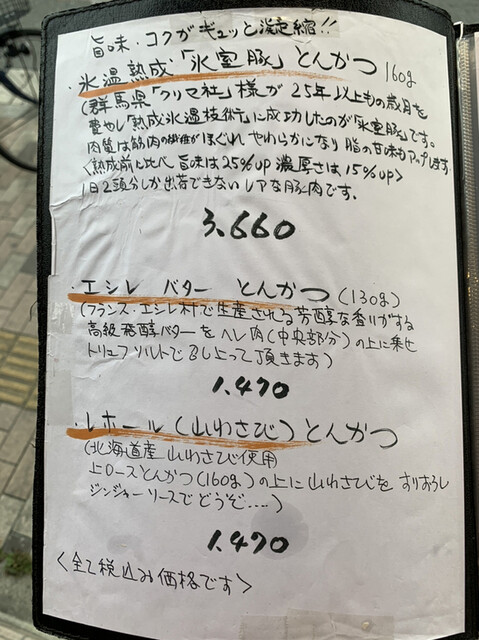 旨味・コクがギュッと凝縮!!
・氷温熟成・「氷室豚」とんかつ 160g
(群馬県「クリマ社」様が25年以上もの歳月を
費やし「熟成氷温技術」に成功したのが「氷室豚」です。
肉質は筋肉の繊維がほぐれ やわらかになり 脂の甘味もアップします
<熟成前と比べ 旨味は25%up 濃厚さは15%up>
1日2頭分しか出荷できないレアな豚肉です。
3,660
・エシレ バター とんかつ(130g)
(フランス・エシレ村で生産される芳醇な香りがする
高級発酵バターをヘレ肉(中央部分)の上に乗せ
トリュフソルトで召し上って頂きます)
1,470
・レホール(山わさび)とんかつ
(北海道産 山わさび使用
上ロースとんかつ(160g)の上に山わさびを すりおろし
ジンジャーソースでどうぞ....)
1,470
<全て税込み価格です>